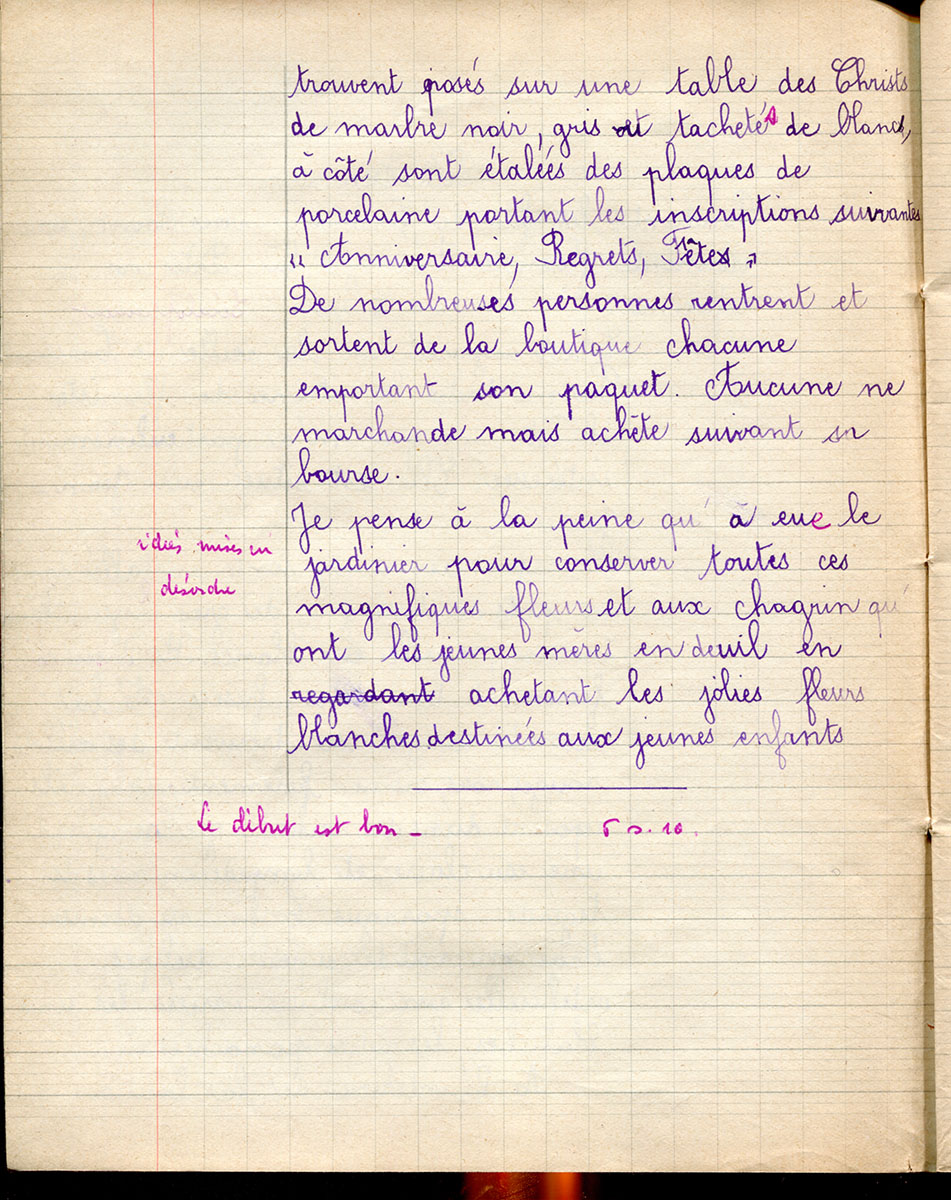 trouvent posés sur une table des Christs
de marbre noir, gris et tachetés de blancs,
à côté sont étalées des plaques de
porcelaine portant les inscriptions suivantes
" Anniversaire, Regrets, Fêtes "
De nombreuses personnes rentrent et
sortent de la boutique chacune
emportant son paquet. Aucune ne
marchande mais achète suivant sa
bourse.
Je pense à la peine qu' à eue le
idées mises en
jardinier pour conserver toutes ces
désordre
magnifiques fleurs et aux chagrin qu'
ont les jeunes mères en deuil en
regardant achetant les jolies fleurs
blanches destinées aux jeunes enfants
Le début est bon - s. 10.